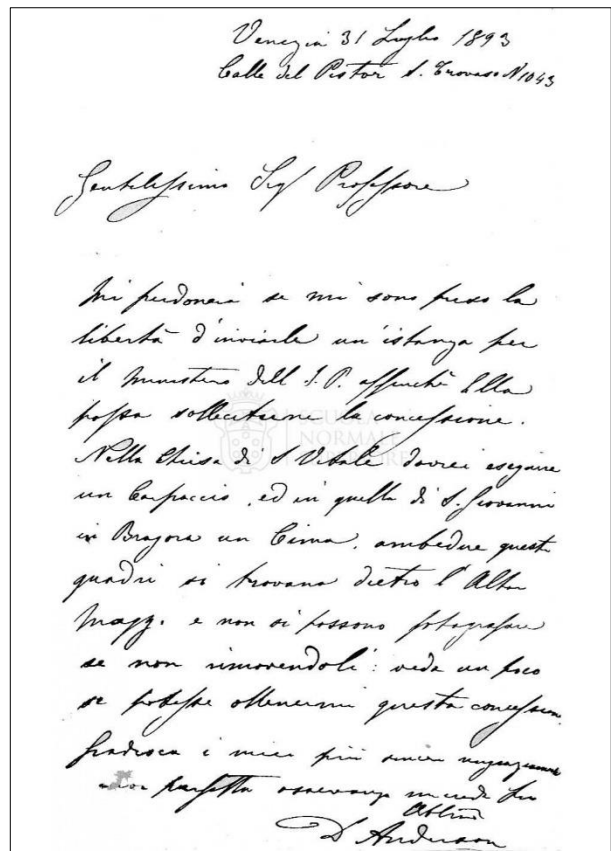 Venezia 31 Luglio 1893
Calle del Pistor S. Trovaso N 1043
Gentilissimo Sigr Professore
Mi perdonerà se mi sono preso la
libertà d'inviarle un'istanza per
il Ministero dell I. P. affinchè Ella
possa sollecitarne la concessione.
Nella Chiesa di S Vitale dovrei eseguire
un Carpaccio, ed in quella di S. Giovanni
in Bragora un Cima, ambedue questi
quadri si trovano dietro l'Altar
Magg. e non si possono fotografare
se non rimovendoli: veda un poco
se potesse ottenermi questa concessione
Gradisca i miei più sinceri ringraziamenti
perfetta osservanza mi creda Suo
D Anderson
SCUOLA
NORMALE
SUPERIORE